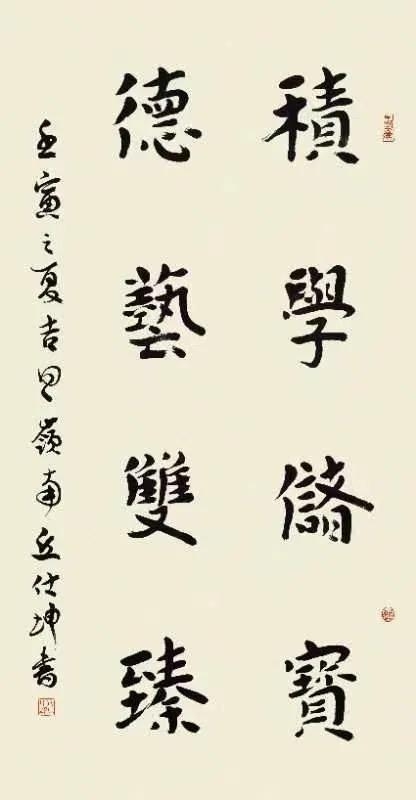 積學儲寶
德藝雙臻
壬寅之夏吉日嶺南丘仕坤書